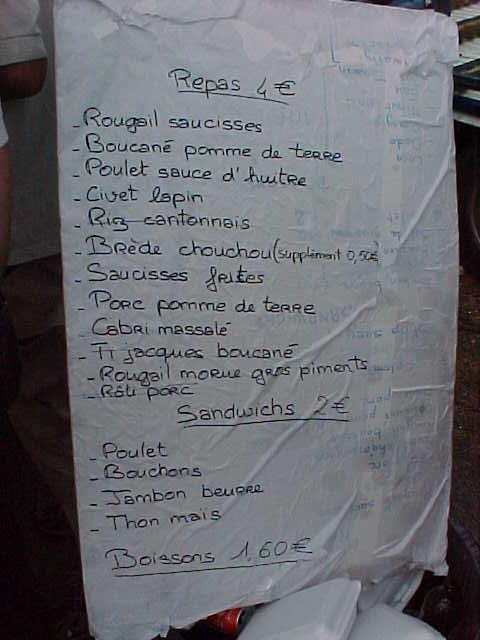 Repas 4€
- Rougail saucisses
- Boucané pomme de terre
- Poulet sauce d'huitre
- Civet lapin
- Riz cantonnais
- Brède chouchou (supplément 0,50€)
- Saucisses frites
- Porc pomme de terre
- Cabri massalé
- Ti jacques boucané
- Rougail morue gros piments
- Rôti porc
Sandwichs 2€
- Poulet
- Bouchons
- Jambon beurre
- Thon mais
Boissons 1,60€